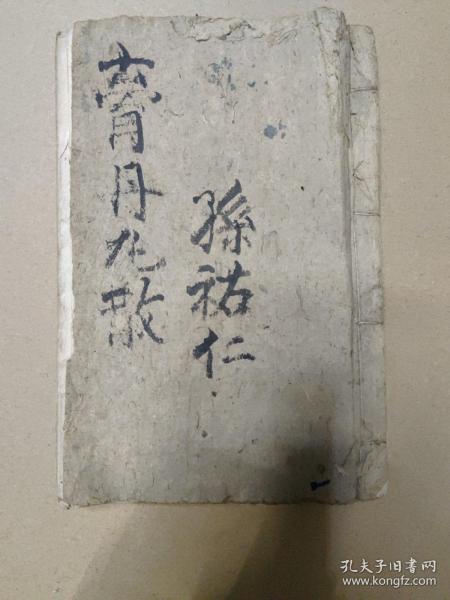 孫祐仁
膏丹丸散
孔夫子旧书网
www.kongfz.com